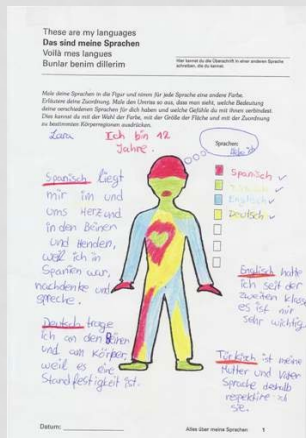 These are my languages
Das sind meine Sprachen
Voilà mes langues
Bunlar benim dillerim
Hier kannst du die Überschrift in einer anderen Sprache
schreiben, die du kennst.
Male deine Sprachen in die Figur und nimm für jede Sprache eine andere Farbe.
Erläutere deine Zuordnung. Male den Umriss so aus, dass man sieht, welche Bedeutung
deine verschiedenen Sprachen für dich haben und welche Gefühle du mit ihnen verbindest.
Dies kannst du mit der Wahl der Farbe, mit der Größe der Fläche und mit der Zuordnung
zu bestimmten Körperregionen ausdrücken.
Lara
Ich bin 12
Jahre.
Sprachen:
Spanisch
Türkisch
Englisch
Deutsch
Spanisch liegt
mir im und
ums Herz und
in den Beinen
und Henden,
weil ich in
Spanien war,
nachdenke und
spreche.
Deutsch trage
ich an den Beinen
und am Körper,
weil es eine
Standfestigkeit ist.
Englisch hatte
ich seit der
zweiten klas
es ist mir
sehr wichtig.
Türkisch ist meine
Mutter und Vater
Sprache deshalb
respektire ich
sie.
Datum:
Alles über meine Sprachen 1